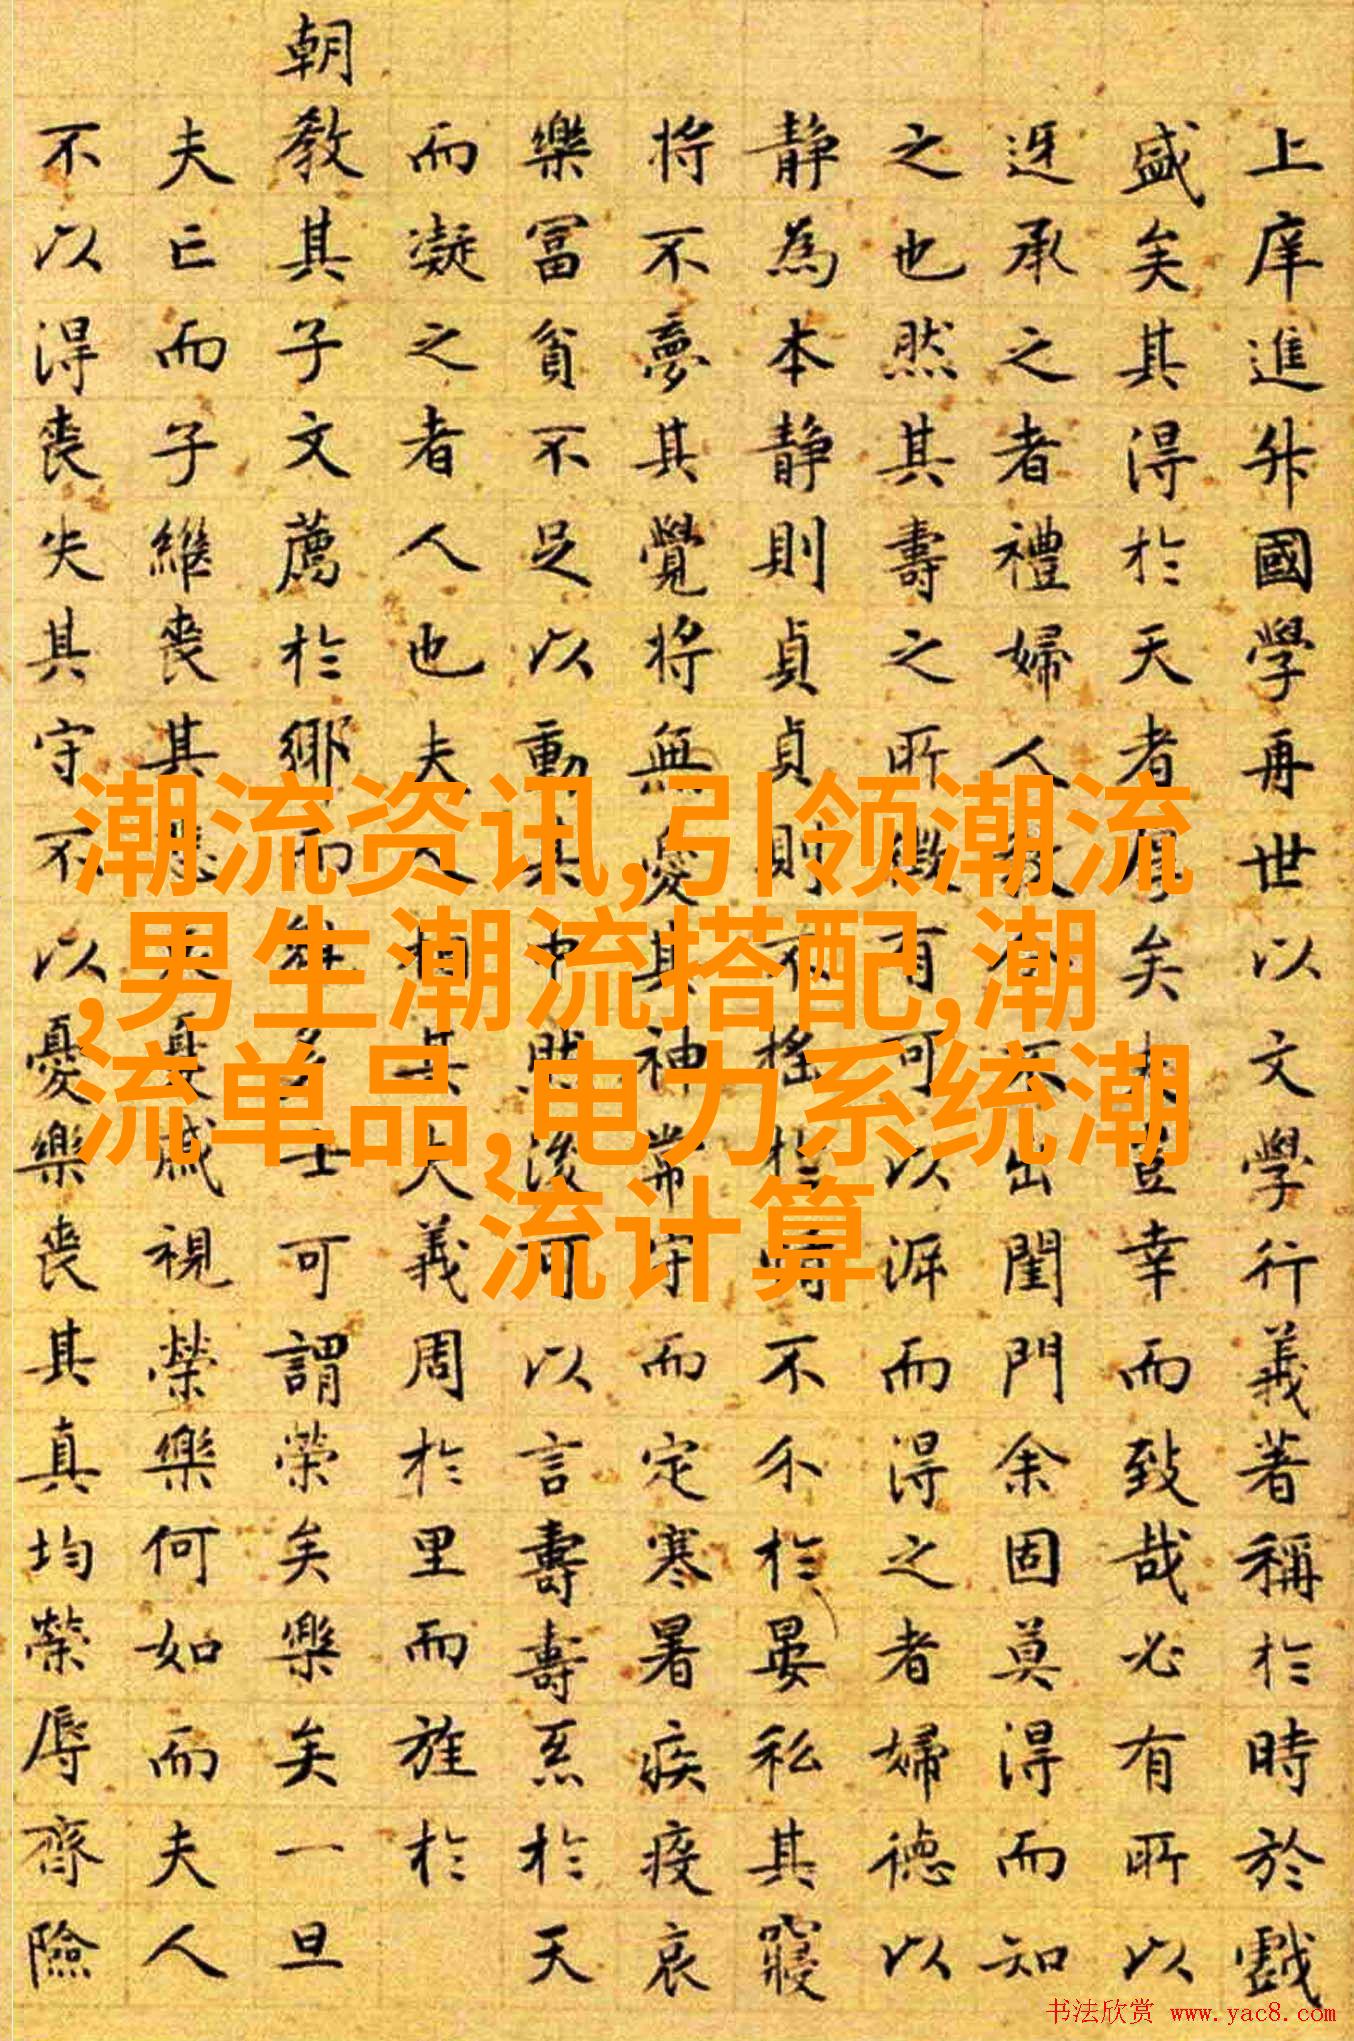 上庠進升國學再世以文學行義著稱於時於戲
盛矣其得於天者厚矣夫豈幸而致哉必有所以
迓承之者禮婦人教令不出閨門余固莫得而知
之也然其壽之所徵有可以涯而得之者婦德以
静為本静則貞貞則不摇於時不介於晏私其寢
將不夢其覺將無憂其神常守而定寒暑疾疫哀
樂冨貧不足以動其中然後可以言壽壽系於天
而凝之者人也夫人相其夫義周於里而旌於
朝教其子文薦於鄉而多士可謂榮矣樂矣一旦
夫亡而子継喪其夫憂戚視榮樂何如而夫人
不以得喪失其守不以憂樂喪其真均榮辱齊險
潮流资讯,引领潮流
,男生潮流搭配,潮
流单品,电力系统潮
流计算
书法欣赏 www.yac8.com